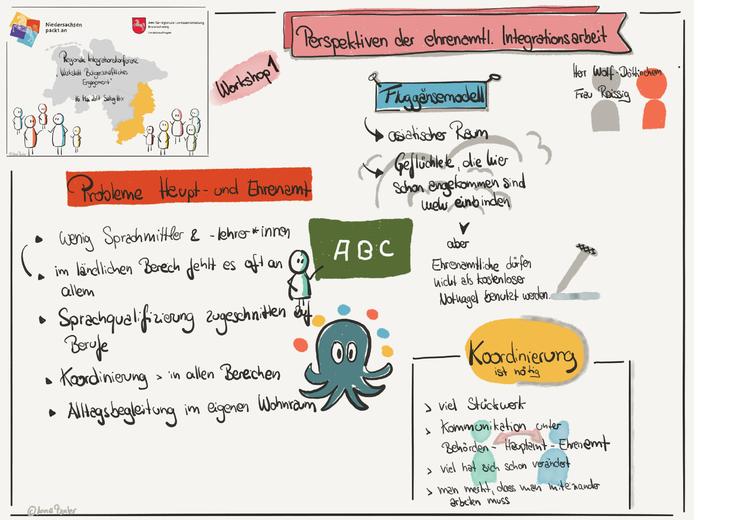 Niedersachsen
packt an
Regionale Integrationskonferenz
Werkstatt Bürgerschaftliches
Engagement
Workshop 1
Perspektiven der ehrenamtl. Integrationsarbeit
Frau
Fluggänsemodell
asiatischer Raum
Geflüchtete, die hier
schon angekommen sind
mehr einbinden
aber
Ehrenamtliche dürfen
nicht als kostenloser
Notnagel benutzt werden.
Probleme Haupt- und Ehrenamt
wenig Sprachmittler & -lehrer*innen
im ländlichen Bereich fehlt es oft an
allem
Sprachqualifizierung zugeschnitten auf
Berufe
Koordinierung > in allen Bereichen
Alltagsbegleitung im eigenen Wohnraum
A B C
Koordinierung
ist nötig
> viel Stückwerk
> Kommunikation unter
Behörden - Hauptamt - Ehrenamt
> viel hat sich schon verändert
> man merkt, dass man miteinander
arbeiten muss